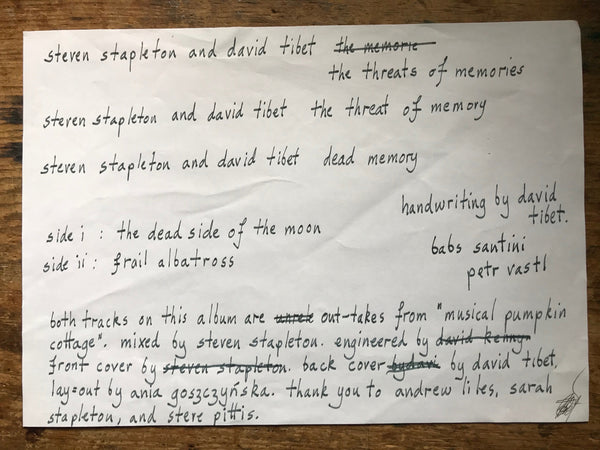 steven stapleton and david tibet the memorie
the threats of memories
steven stapleton and david tibet the threat of memory
steven stapleton and david tibet dead memory
handwriting by david
tibet.
side i : the dead side of the moon
side ii : frail albatross
babs santini
petr vastl
both tracks on this album are unrele out-takes from "musical pumpkin
cottage". mixed by steven stapleton. engineered by david kenny.
front cover by steven stapleton. back cover by davi by david tibet.
lay=out by ania goszczyńska. thank you to andrew liles, sarah
stapleton, and steve pittis.